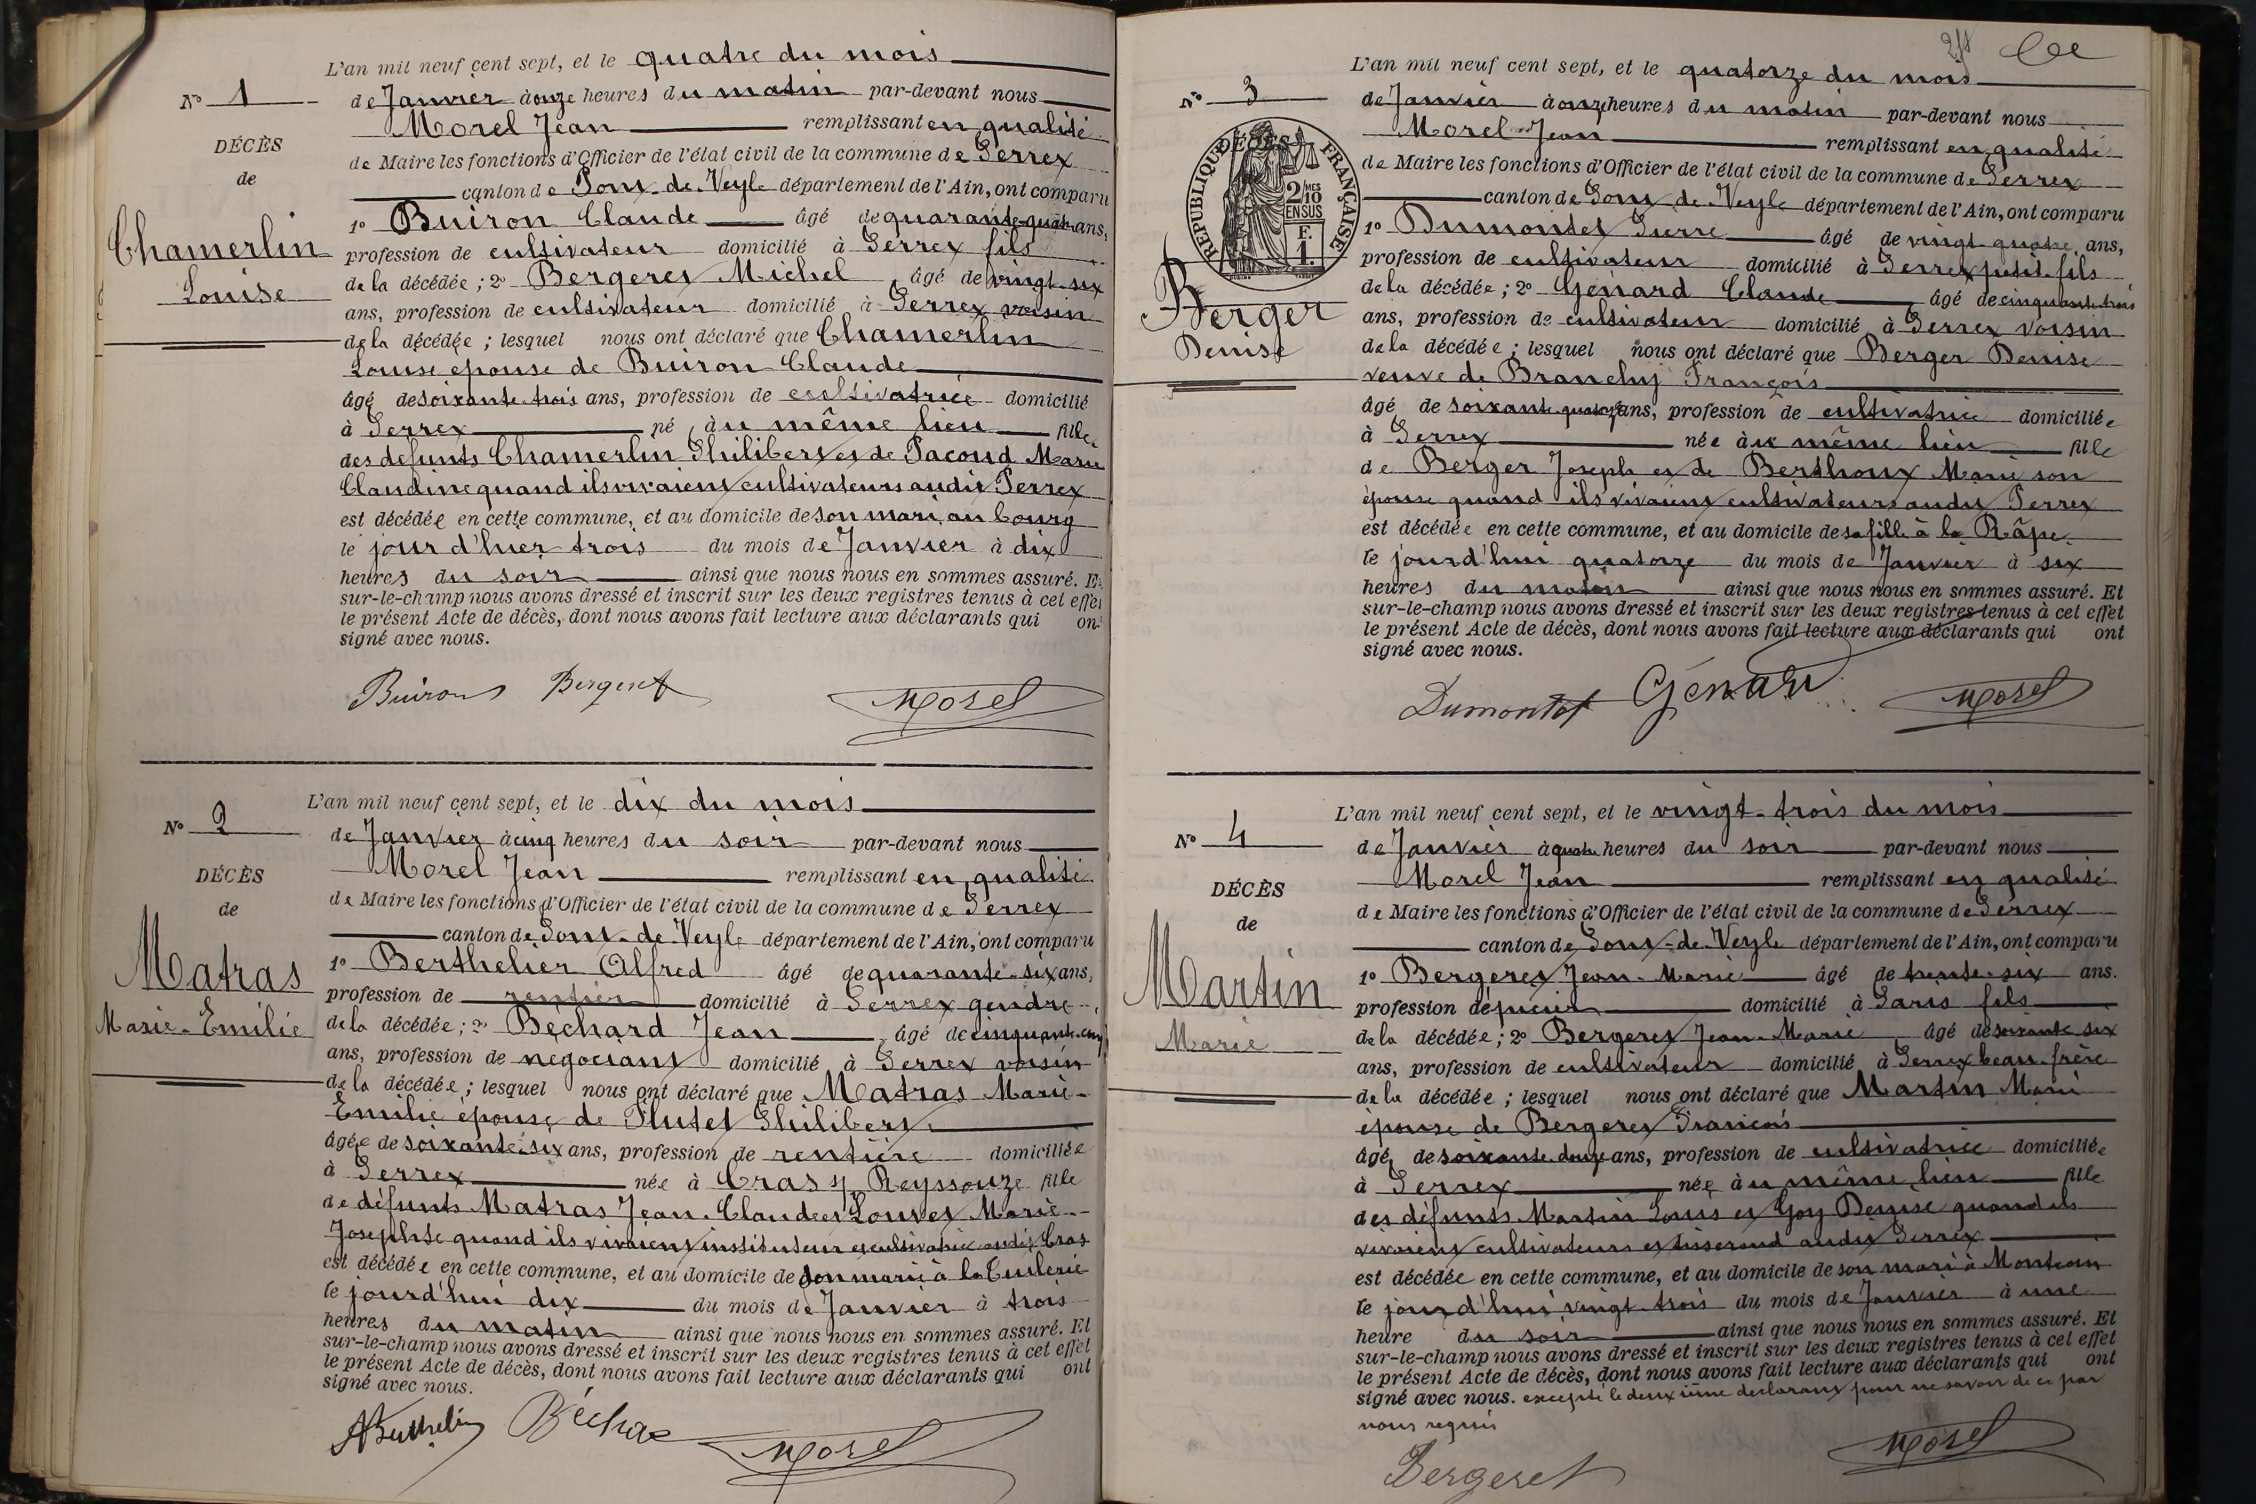 L'an mil neuf cent sept, et le quatre du mois
No 1
de Janvier à onze heures du matin par-devant nous
Morel Jean remplissant en qualité
DÉCÈS
de Maire les fonctions d'Officier de l'état civil de la commune de Perrex
de
canton de Pont-de-Veyle département de l'Ain, ont comparu
1o Buiron Claude âgé de quarante-quatre ans,
Chamerlin
profession de cultivateur domicilié à Perrex fils
Louise
de la décédée ; 2o Bergeret Michel âgé de vingt-six
ans, profession de cultivateur domicilié à Perrex voisin
de la décédée ; lesquel nous ont déclaré que Chamerlin
Louise épouse de Buiron Claude
âgé de soixante-trois ans, profession de cultivatrice domicilié
à Perrex né au même lieu fille
des défunts Chamerlin Philibert et de Pacoud Marie
Claudine quand ils vivaient cultivateurs audit Perrex
est décédée en cette commune, et au domicile de son mari au bourg
le jour d'hier trois du mois de Janvier à dix
heures du soir ainsi que nous nous en sommes assuré. Et
sur-le-champ nous avons dressé et inscrit sur les deux registres tenus à cet effet
le présent Acte de décès, dont nous avons fait lecture aux déclarants qui ont
signé avec nous.
Buiron Bergeret Morel
L'an mil neuf cent sept, et le dix du mois
No 2
de Janvier à cinq heures du soir par-devant nous
Morel Jean remplissant en qualité
DÉCÈS
de Maire les fonctions d'Officier de l'état civil de la commune de Perrex
de
canton de Pont-de-Veyle département de l'Ain, ont comparu
1o Berthelier Alfred âgé de quarante-six ans,
Matras
profession de rentier domicilié à Perrex gendre
Marie-Emilie
de la décédée ; 2o Béchard Jean âgé de cinquante-cinq
ans, profession de négociant domicilié à Perrex voisin
de la décédée ; lesquel nous ont déclaré que Matras Marie-
Emilie épouse de Plutet Philibert
âgée de soixante-six ans, profession de rentière domiciliée
à Perrex née à Cras s/ Reyssouze fille
de défunts Matras Jean-Claude et Louvet Marie-
Josephte quand ils vivaient instituteur et cultivatrice audit Cras
est décédée en cette commune, et au domicile de son mari à la Tuilerie
le jourd'hui dix du mois de Janvier à trois
heures du matin ainsi que nous nous en sommes assuré. Et
sur-le-champ nous avons dressé et inscrit sur les deux registres tenus à cet effet
le présent Acte de décès, dont nous avons fait lecture aux déclarants qui ont
signé avec nous.
ABerthelier Béchard Morel
L'an mil neuf cent sept, et le quatorze du mois
No 3
de Janvier à onze heures du matin par-devant nous
Morel Jean remplissant en qualité
DÉCÈS
RÉPUBLIQUE FRANÇAISE
2/10MES
EN SUS
F.
1.
de Maire les fonctions d'Officier de l'état civil de la commune de Perrex
canton de Pont-de-Veyle département de l'Ain, ont comparu
1o Dumontet Pierre âgé de vingt-quatre ans,
profession de cultivateur domicilié à Perrex petit-fils
de la décédée ; 2o Génard Claude âgé de cinquante-trois
Berger
ans, profession de cultivateur domicilié à Perrex voisin
Denise
de la décédée ; lesquel nous ont déclaré que Berger Denise
veuve de Branchy François
âgé de soixante-quatorze ans, profession de cultivatrice domiciliée
à Perrex née au même lieu fille
de Berger Joseph et de Berthoux Marie son
épouse quand ils vivaient cultivateurs audit Perrex
est décédée en cette commune, et au domicile de sa fille à la Râpe
le jourd'hui quatorze du mois de Janvier à six
heures du matin ainsi que nous nous en sommes assuré. Et
sur-le-champ nous avons dressé et inscrit sur les deux registres tenus à cet effet
le présent Acte de décès, dont nous avons fait lecture aux déclarants qui ont
signé avec nous.
Dumontet Génard Morel
L'an mil neuf cent sept, et le vingt-trois du mois
No 4
de Janvier à quatre heures du soir par-devant nous
Morel Jean remplissant en qualité
DÉCÈS
de Maire les fonctions d'Officier de l'état civil de la commune de Perrex
de
canton de Pont-de-Veyle département de l'Ain, ont comparu
1o Bergeret Jean-Marie âgé de trente-six ans.
Martin
profession d'épicier domicilié à Paris fils
Marie
de la décédée ; 2o Bergeret Jean-Marie âgé de soixante-six
ans, profession de cultivateur domicilié à Perrex beau-frère
de la décédée ; lesquel nous ont déclaré que Martin Marie
épouse de Bergeret François
âgé de soixante-douze ans, profession de cultivatrice domiciliée
à Perrex née au même lieu fille
des défunts Martin Louis et Goy Denise quand ils
vivaient cultivateurs et tisserand audit Perrex
est décédée en cette commune, et au domicile de son mari à
le jourd'hui vingt-trois du mois de Janvier à une
heure du soir ainsi que nous nous en sommes assuré. Et
sur-le-champ nous avons dressé et inscrit sur les deux registres tenus à cet effet
le présent Acte de décès, dont nous avons fait lecture aux déclarants qui ont
signé avec nous. excepté le deuxième déclarant pour ne savoir de ce par
nous requis
Bergeret Morel